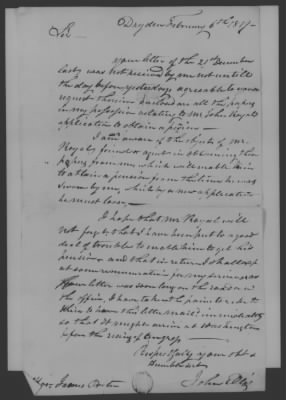 Dryden February 6th 1837
Sir
your letter of the 21st December
last was not received by me not untill
the day before yesterday agreable to your
request therein inclosed are all the papers
in my possession relating to Mr John Royal
application to obtain a pension
I am aware of the object of Mr
Royals friend & agent in obtaining these
papers from me which will enable him
to obtain a pension from the time he was
sworn by me, which by a new application
he must loose
I hope that Mr Royal will
not forget that I have been put to a good
deal of trouble to enable him to get his
pension and that in return I shall
at some remuneration for my services
your letter was soon long on the road or in
the office, I have taken the pains to ride to
to have this letter mailed immediately
so that it might arrive at Washington
before the rising of Congress
Respectfully your obt
Humble servt
John Ellis
James